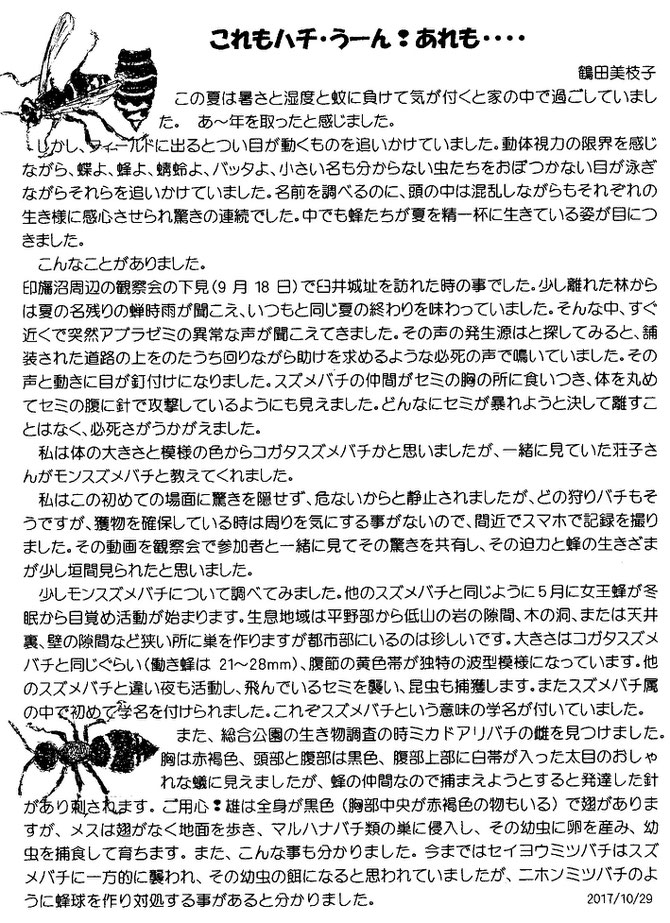 これもハチ・うーん❢あれも・・・・
鶴田美枝子
この夏は暑さと湿度と蚊に負けて気が付くと家の中で過ごしていまし
た。　あ～年を取ったと感じました。
しかし、フィールドに出るとつい目が動くものを追いかけていました。動体視力の限界を感じ
ながら、蝶よ、蜂よ、蜻蛉よ、バッタよ、小さい名も分からない虫たちをおぼつかない目が泳ぎ
ながらそれらを追いかけていました。名前を調べるのに、頭の中は混乱しながらもそれぞれの
生き様に感心させられ驚きの連続でした。中でも蜂たちが夏を精一杯に生きている姿が目につ
きました。
こんなことがありました。
印旛沼周辺の観察会の下見(9 月 18 日)で臼井城址を訪れた時の事でした。少し離れた林から
は夏の名残りの蝉時雨が聞こえ、いつもと同じ夏の終わりを味わっていました。そんな中、すぐ
近くで突然アブラゼミの異常な声が聞こえてきました。その声の発生源はと探してみると、舗
装された道路の上をのたうち回りながら助けを求めるような必死の声で鳴いていました。その
声と動きに目が釘付けになりました。スズメバチの仲間がセミの胸の所に食いつき、体を丸め
てセミの腹に針で攻撃しているようにも見えました。どんなにセミが暴れようと決して離すこ
とはなく、必死さがうかがえました。
私は体の大きさと模様の色からコガタスズメバチかと思いましたが、一緒に見ていた荘子さ
んがモンスズメバチと教えてくれました。
私はこの初めての場面に驚きを隠せず、危ないからと静止されましたが、どの狩りバチもそ
うですが、獲物を確保している時は周りを気にする事がないので、間近でスマホで記録を撮り
ました。その動画を観察会で参加者と一緒に見てその驚きを共有し、その迫力と蜂の生きざま
が少し垣間見られたと思いました。
少しモンスズメバチについて調べてみました。他のスズメバチと同じように５月に女王蜂が冬
眠から目覚め活動が始まります。生息地域は平野部から低山の岩の隙間、木の洞、または天井
裏、壁の隙間など狭い所に巣を作りますが都市部にいるのは珍しいです。大きさはコガタスズメ
バチと同じぐらい(働き蜂は 21～28mm)、腹節の黄色帯が独特の波型模様になっています。他
のスズメバチと違い夜も活動し、飛んでいるセミを襲い、昆虫も捕獲します。またスズメバチ属
の中で初めて学名を付けられました。これぞスズメバチという意味の学名が付いていました。
また、総合公園の生き物調査の時ミカドアリバチの雌を見つけました。
胸は赤褐色、頭部と腹部は黒色、腹部上部に白帯が入った太目のおしゃ
れな蟻に見えましたが、蜂の仲間なので捕まえようとすると発達した針
があり刺されます。ご用心❢雄は全身が黒色（胸部中央が赤褐色の物もいる）で翅がありま
すが、メスは翅がなく地面を歩き、マルハナバチ類の巣に侵入し、その幼虫に卵を産み、幼
虫を捕食して育ちます。また、こんな事も分かりました。今まではセイヨウミツバチはスズ
メバチに一方的に襲われ、その幼虫の餌になると思われていましたが、ニホンミツバチのよ
うに蜂球を作り対処する事があると分かりました。
2017/10/29